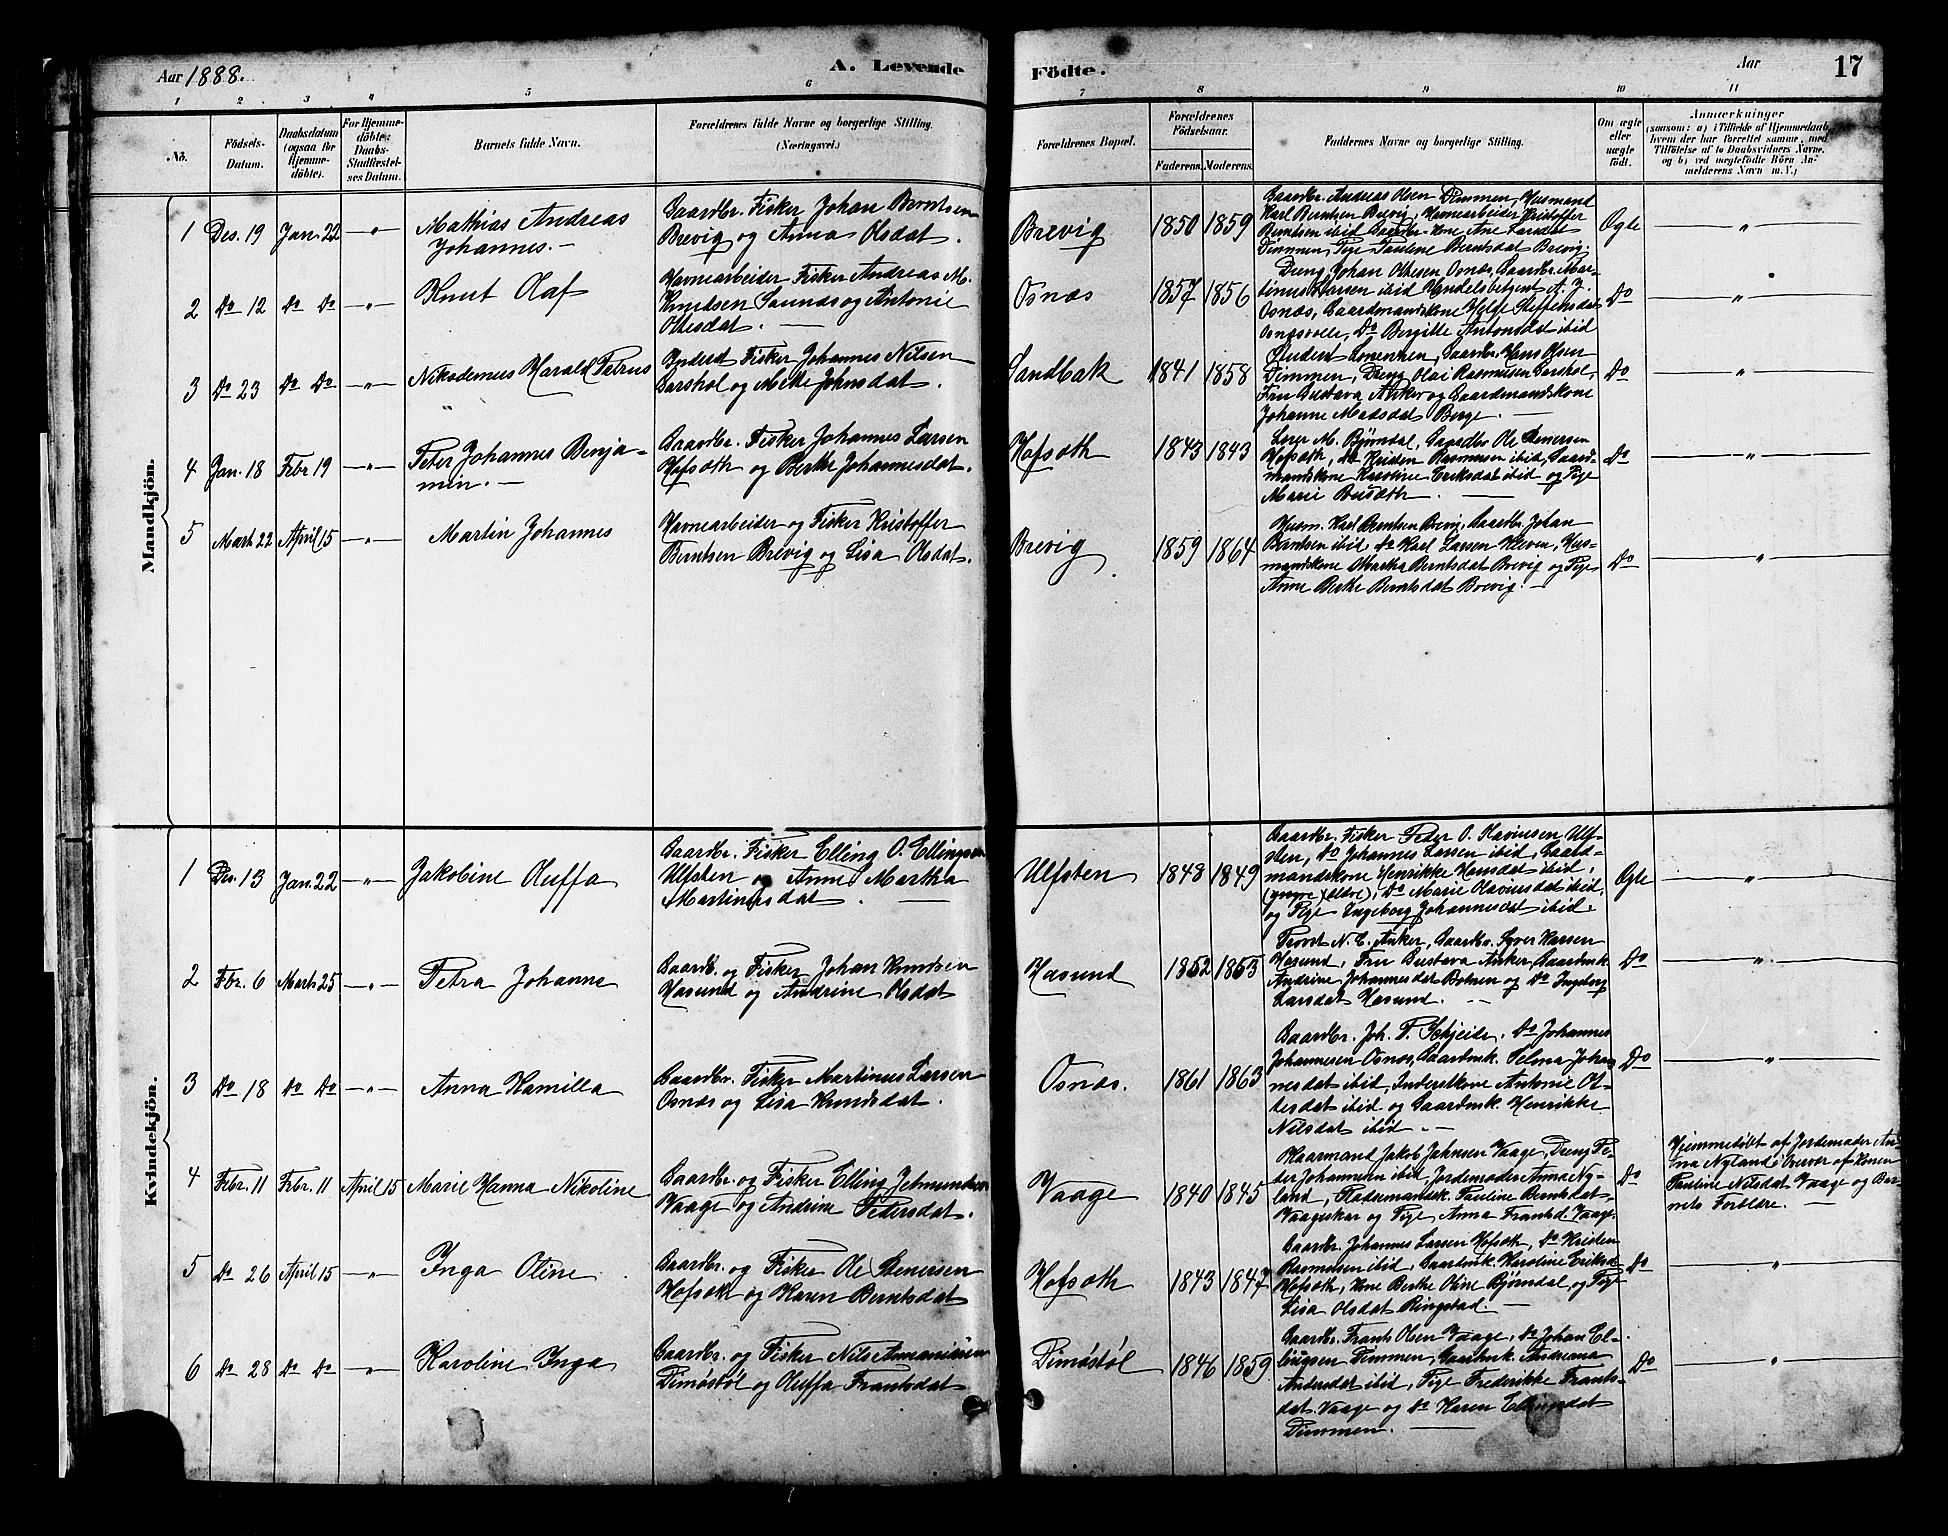 Aar 1888.
A. Levende
Födte.
Aar
17
1 2 3 4 5 6 7 8 9 10 11
No.
Födsels-Datum.
Daabsdatum (ogsaa for Hjemmedöbte).
For Hjemmedöbte: Daabs-Stadfæstelses Datum.
Barnets fulde Navn.
Forældrenes fulde Navne og borgerlige Stilling.
(Næringsvei.)
Forældrenes Bopæl.
Forældrenes Födselsaar.
Faderens. Moderens.
Faddernes Navne og borgerlige Stilling.
Om ægte eller uægte födt.
Anmærkninger
(saasom: a) i Tilfælde af Hjemmedaab,
hvem der har forrettet samme, med
Tilföielse af to Daabsvidners Navne,
og b) ved uægtefödte Börn Anmelderens Navn m. V.)
Mandkjön.
1 Des. 19 Jan. 22 " Mathias Andreas
Johannes.
Gaardbr. Fisker Johan Berntsen
Brevig og Anna Olsdat.
Brevig 1850 1859
Gaardbr. Andreas Olsen Dimmen, Husmand
Karl Berntsen Brevig, Havnearbeider Kristoffer
Berntsen ibid
Dimmen, Pige Pauline Berntsdat Brevig.
Ægte "
2 Do 12 Do Do " Knut Olaf
Havnearbeider Fisker Andreas M.
Knudsen og Antonie
Ottesdat.
Osnæs 1857 1856
Dreng Johan Ottesen Osnæs, Gaardbr. Mar-
tinus Larsen ibid Handelsbetjent A. J.
Osnæs, Gaardmandskone Helge Steffensdat
Osnæsvolle, Do Bergitte Antonsdat ibid
Do "
3 Do 23 Do Do " Nikodemus Harald Petrus
Inderst Fisker Johannes Nilsen
Garshol og Mette Johnsdat.
Sandbak 1841 1858
Student Lonenken, Gaardbr. Hans Olsen
Dimmen, Dreng Olai Rasmusen Garshol,
Fru Gustava Anker og Gaardmandskone
Johanne Madsdat Berge.
Do "
4 Jan. 18 Febr 19 " Peter Johannes Benja-
min.
Gaardbr. Fisker Johannes Larsen
Hofsøth og Berte Johannesdat.
Hofsøth 1843 1843
Lærer M. Bjørndal, Gaardbr Ole Stenersen
Hofsøth, Do Kristen Rasmusen ibid, Gaard-
mandskone Karoline Eriksdat ibid og Pige
Marie Busøth.
Do "
5 Mart. 22 April 15 " Martin Johannes
Havnearbeider og Fisker Kristoffer
Berntsen Brevig og Lisa Olsdat.
Brevig 1859 1864
Husm. Karl Berntsen Brevig, Gaardbr. Johan
Berntsen ibid, Do Karl Larsen Kleven, Hus-
mandskone Martha Berntsdat Brevig og Pige
Anne Berte Berntsdat Brevig.
Do "
Kvindekjön.
1 Des. 13 Jan. 22 " Jakobine Oluffa
Gaardbr. Fisker Elling O. Ellingsen
Ulfsten og Anne Martha
Martinusdat.
Ulfsten 1848 1849
Gaardbr. Fisker Peder O. Haviusen Ulf-
sten, Do Johannes Larsen ibid, Gaard-
mandskone Henrikke Hansdat ibid,
(yngre) (eldre), Do Marie Olaviusdat ibid,
og Pige Ingeborg Johannesdat ibid.
Ægte "
2 Fbr. 6 Mart. 25 " Petra Johanne
Gaardb. og Fisker Johan Knudsen
Hasund og Andrine Olsdat
Hasund 1852 1853
Provst N. C. Anker, Gaardbr. Syver Larsen
Hasund, Fru Gustava Anker, Gaardmk.
Andrine Johannesdat Botnen og Do Ingeborg
Larsdat Hasund.
Do "
3 Do 18 Do Do " Anna Kamilla
Gaardbr. Fisker Martinus Larsen
Osnæs og Lisa Knudsdat.
Osnæs. 1861 1863
Gaardbr. Joh. P. Skjeide, Do Johannes
Johannesen Osnæs, Gaardmk. Selma Johan-
nesdat ibid, Inderstkone Antonie Ot-
tesdat ibid og Gaardmk. Henrikke
Nilsdat ibid.
Do "
4 Febr. 11 Febr. 11 April 15 Marie Hanna Nikoline
Gaardbr. og Fisker Elling Jetmundsen
Vaage og Andrine Pedersdat.
Vaage 1840 1845
Kaarmand Jakob Johnsen Vaage, Dreng Pe-
der Johannesen ibid, Jordemoder Anna Ny-
land, Pladsemandsk. Pauline Berntsdat
Vaageskar og Pige Anna Frantsd. Vaage
Do
Hjemmedøbt af Jordemoder An-
na Nyland i Overvær af Konen
Pauline Nilsdat Vaage og Bar-
nets Forældre.
5 Do 26 April 15 " Inga Oline
Gaardbr. og Fisker Ole Stenersen
Hofsøth og Karen Berntsdat
Hofsøth 1843 1847
Gaardbr. Johannes Larsen Hofsøth, Do Kristen
Rasmusen ibid, Gaardmk. Karoline Eriksd.
Hofsøth, Kone Berte Oline Bjørndal, og Pige
Lisa Olsdat Ringstad.
Do "
6 Do 28 Do Do " Karoline Inga
Gaardbr. og Fisker Nils Ananiasen
Dimøstøl og Oluffa Frantsdat
Dimøstøl 1846 1859
Gaardbr. Frants Olsen Vaage, Do Johan El-
lingsen Dimmen, Gaardmk. Andreana
Andersdat ibid, Pige Frederikke Frants-
dat Vaage og Do Karen Ellingsdat
Dimmen.
Do "